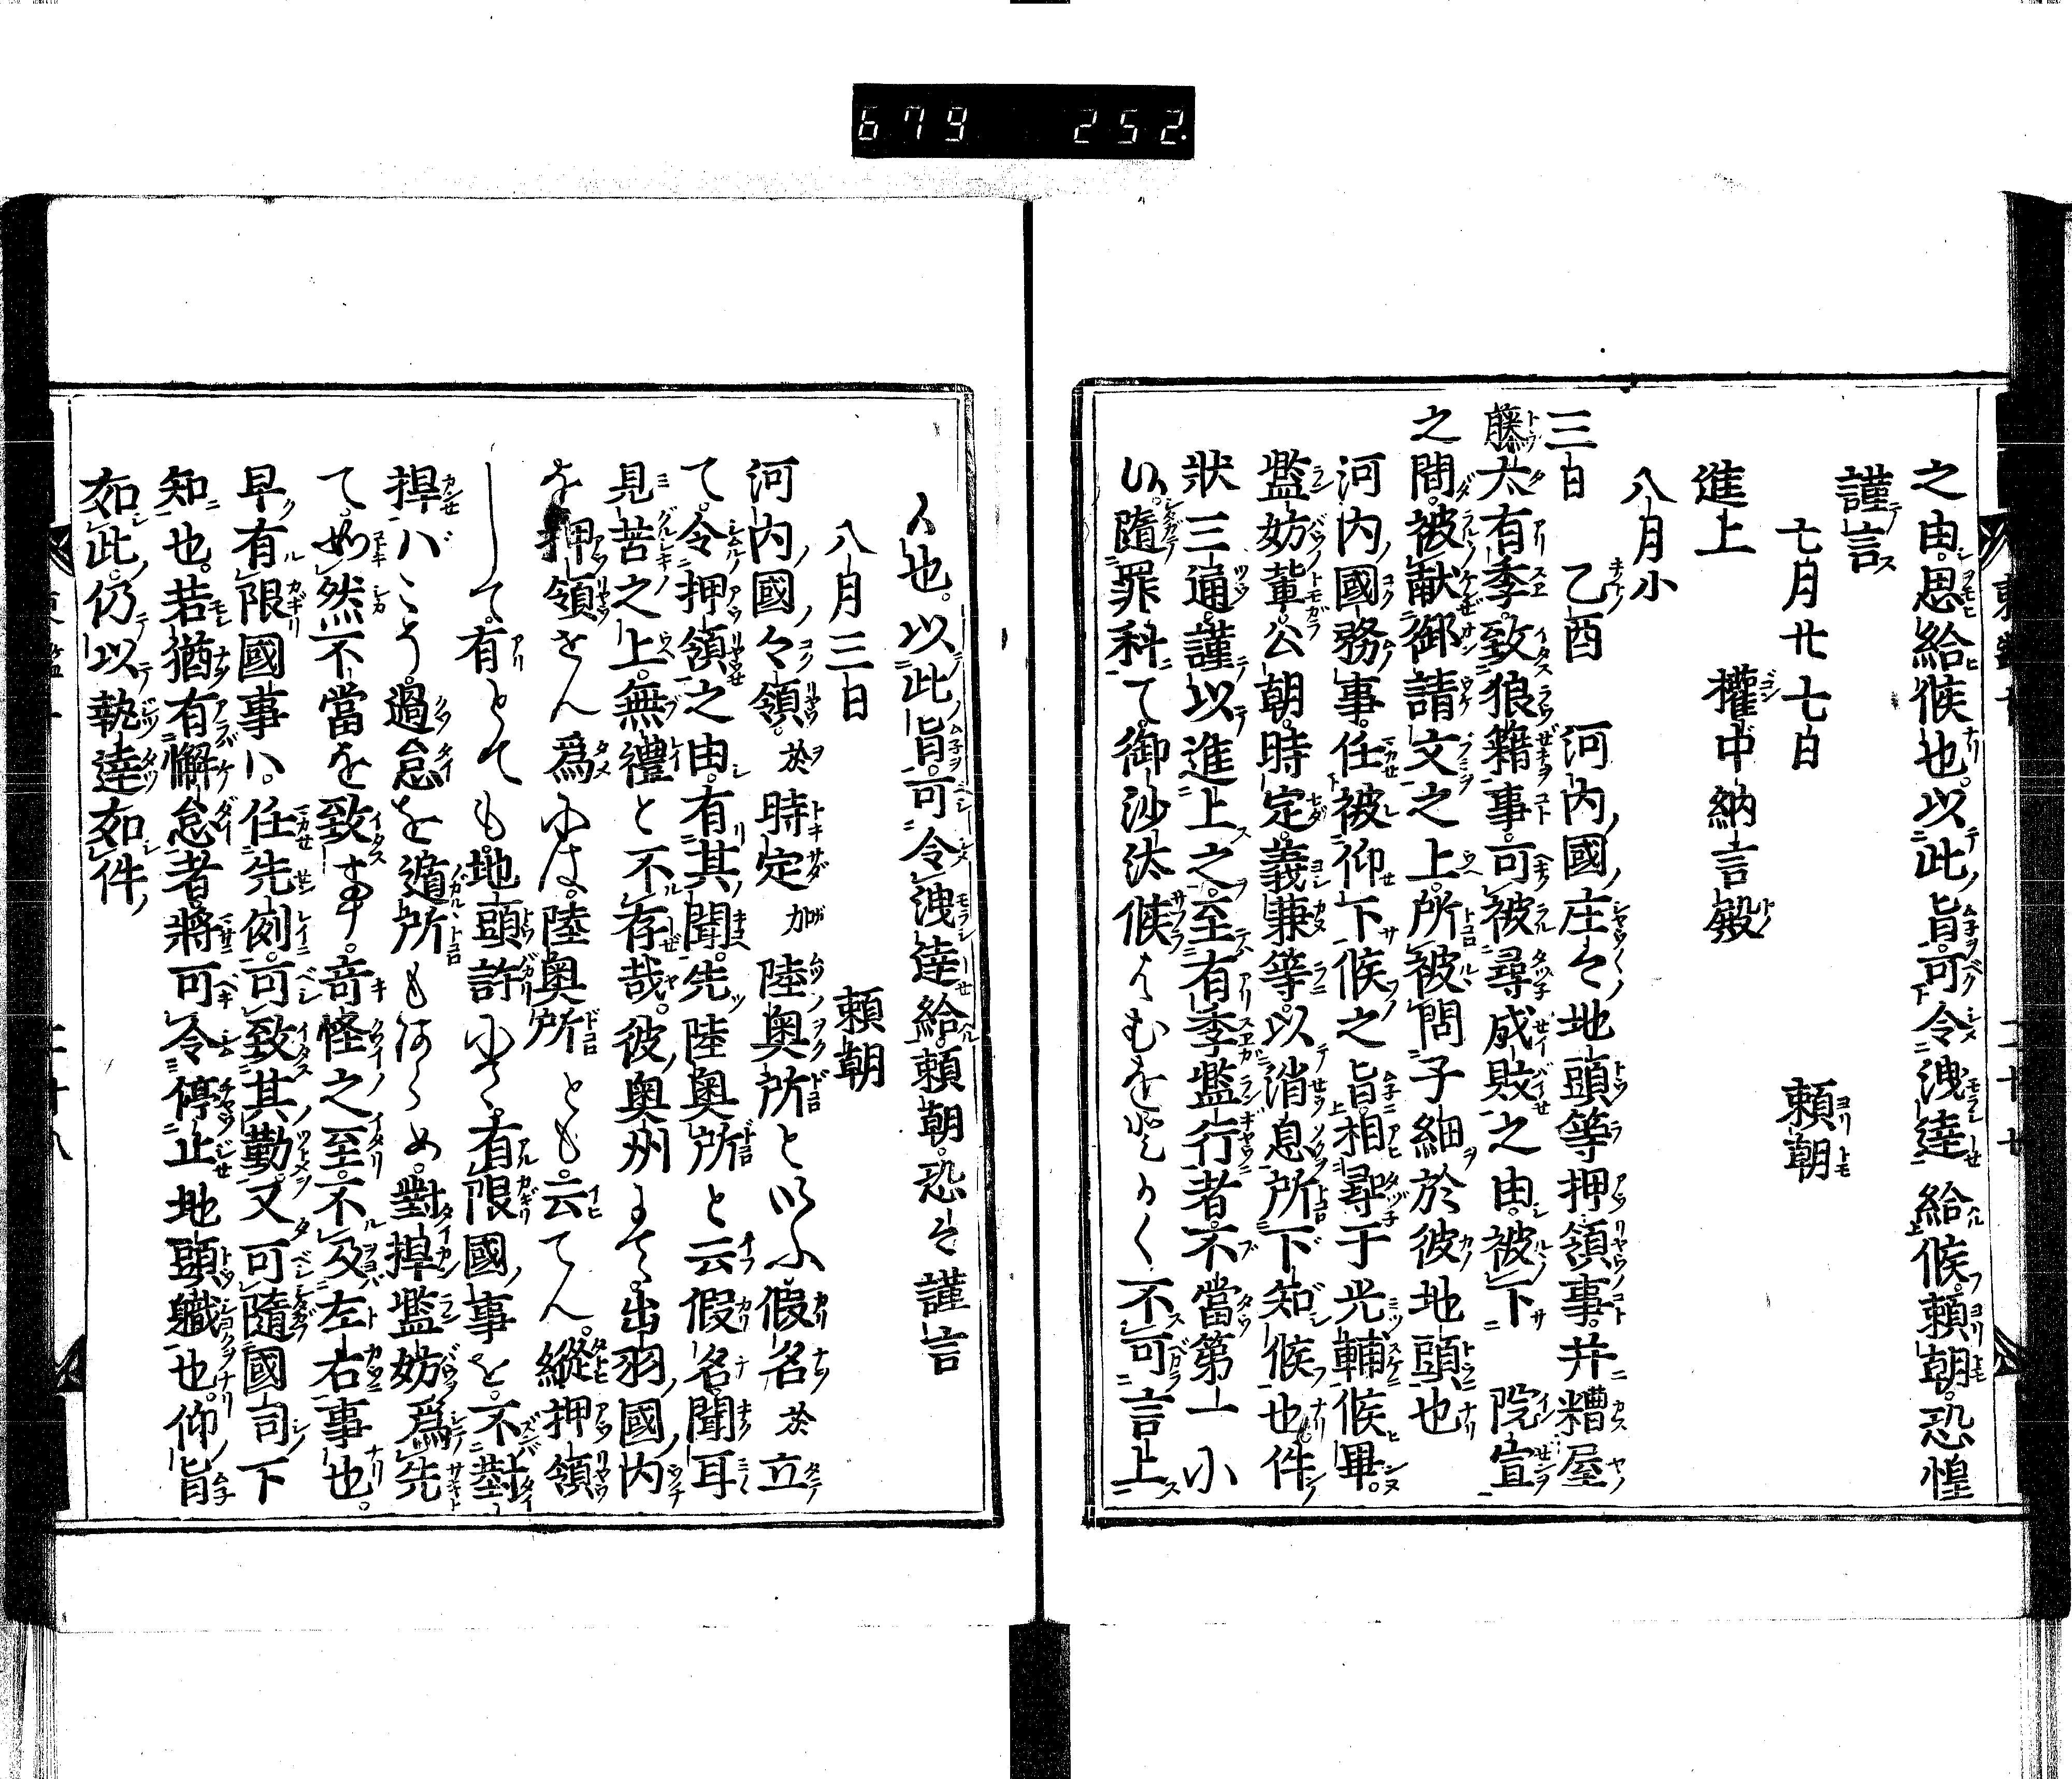 679 252.
之由。思給候也。以此旨。可令洩達給候。頼朝。恐惶
謹言
七月廿七日 頼朝
進上 權中納言殿
八月小
三日 乙酉 河内國庄々地頭等押領事。并糟屋
藤太有季致狼藉事。可被尋成敗之由。被下 院宣
之間。被献御請文之上。所被問子細於彼地頭也
河内國務事。任被仰下候之旨。相尋于光輔候畢。
濫妨輩。公朝。時定。義兼等。以消息所下知候也件
状三通。謹以進上之。至有季濫行者。不當第一小
隨罪科て。御沙汰候 不可言上
人也。以此旨。可令洩達給。頼朝。恐々謹言
八月三日 頼朝
河内國々領。於時定加陸奥所といふ假名於立
て。令押領之由。有其聞。先陸奥所と云假名。聞耳
見苦之上。無禮と不存哉。彼奥州 出羽國内
を押領せん爲 陸奥所とも。云てん。縱押領
して。有とても。地頭許 有限國事を。不對
捍バこそ。過怠を遁所もあらめ。對捍濫妨爲先
て。如然不當を致事。奇怪之至。不及左右事也。
早有限國事ハ。任先例。可致其勤。又可隨國司下
知也。若猶有懈怠者。將可令停止地頭職也。仰旨
如此。仍以執達如件